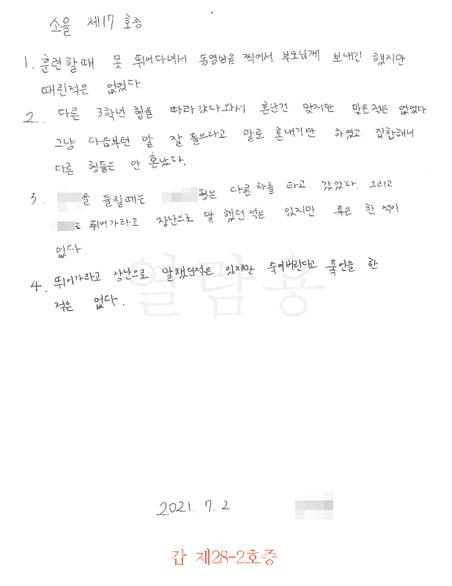 소을 제17호증
1. 훈련할때 못 뛰어다녀서 동영상을 찍어서 부모님께 보내긴 했지만
때린적은 없었다
2. 다른 3학년 형들 따라갔다와서 혼난건 맞지만 맞은적은 없었다
그냥 다음부턴 말 잘 들으라고 말로 혼내기만 하였고 집합해서
다른 형들은 안 혼났다.
3. 을 들릴때는 형은 다른차를 타고 갔었다 그리고
뛰어가라고 장난으로 말 했던적은 있지만 한 적이
없다
4. 뛰어가라고 장난으로 말했던적은 있지만 죽여버린다고 폭언을 한
적은 없다.
열람용
2021. 7. 2
갑 제28-2호증